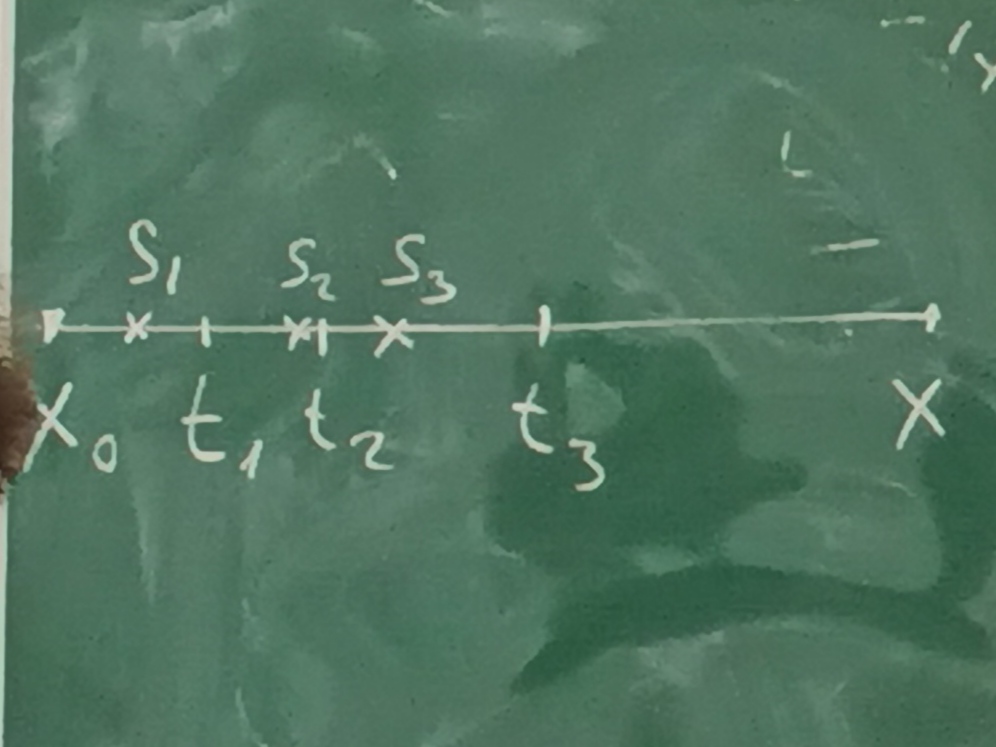 S₁ S₂ S₃
x₀ t₁ t₂ t₃ x